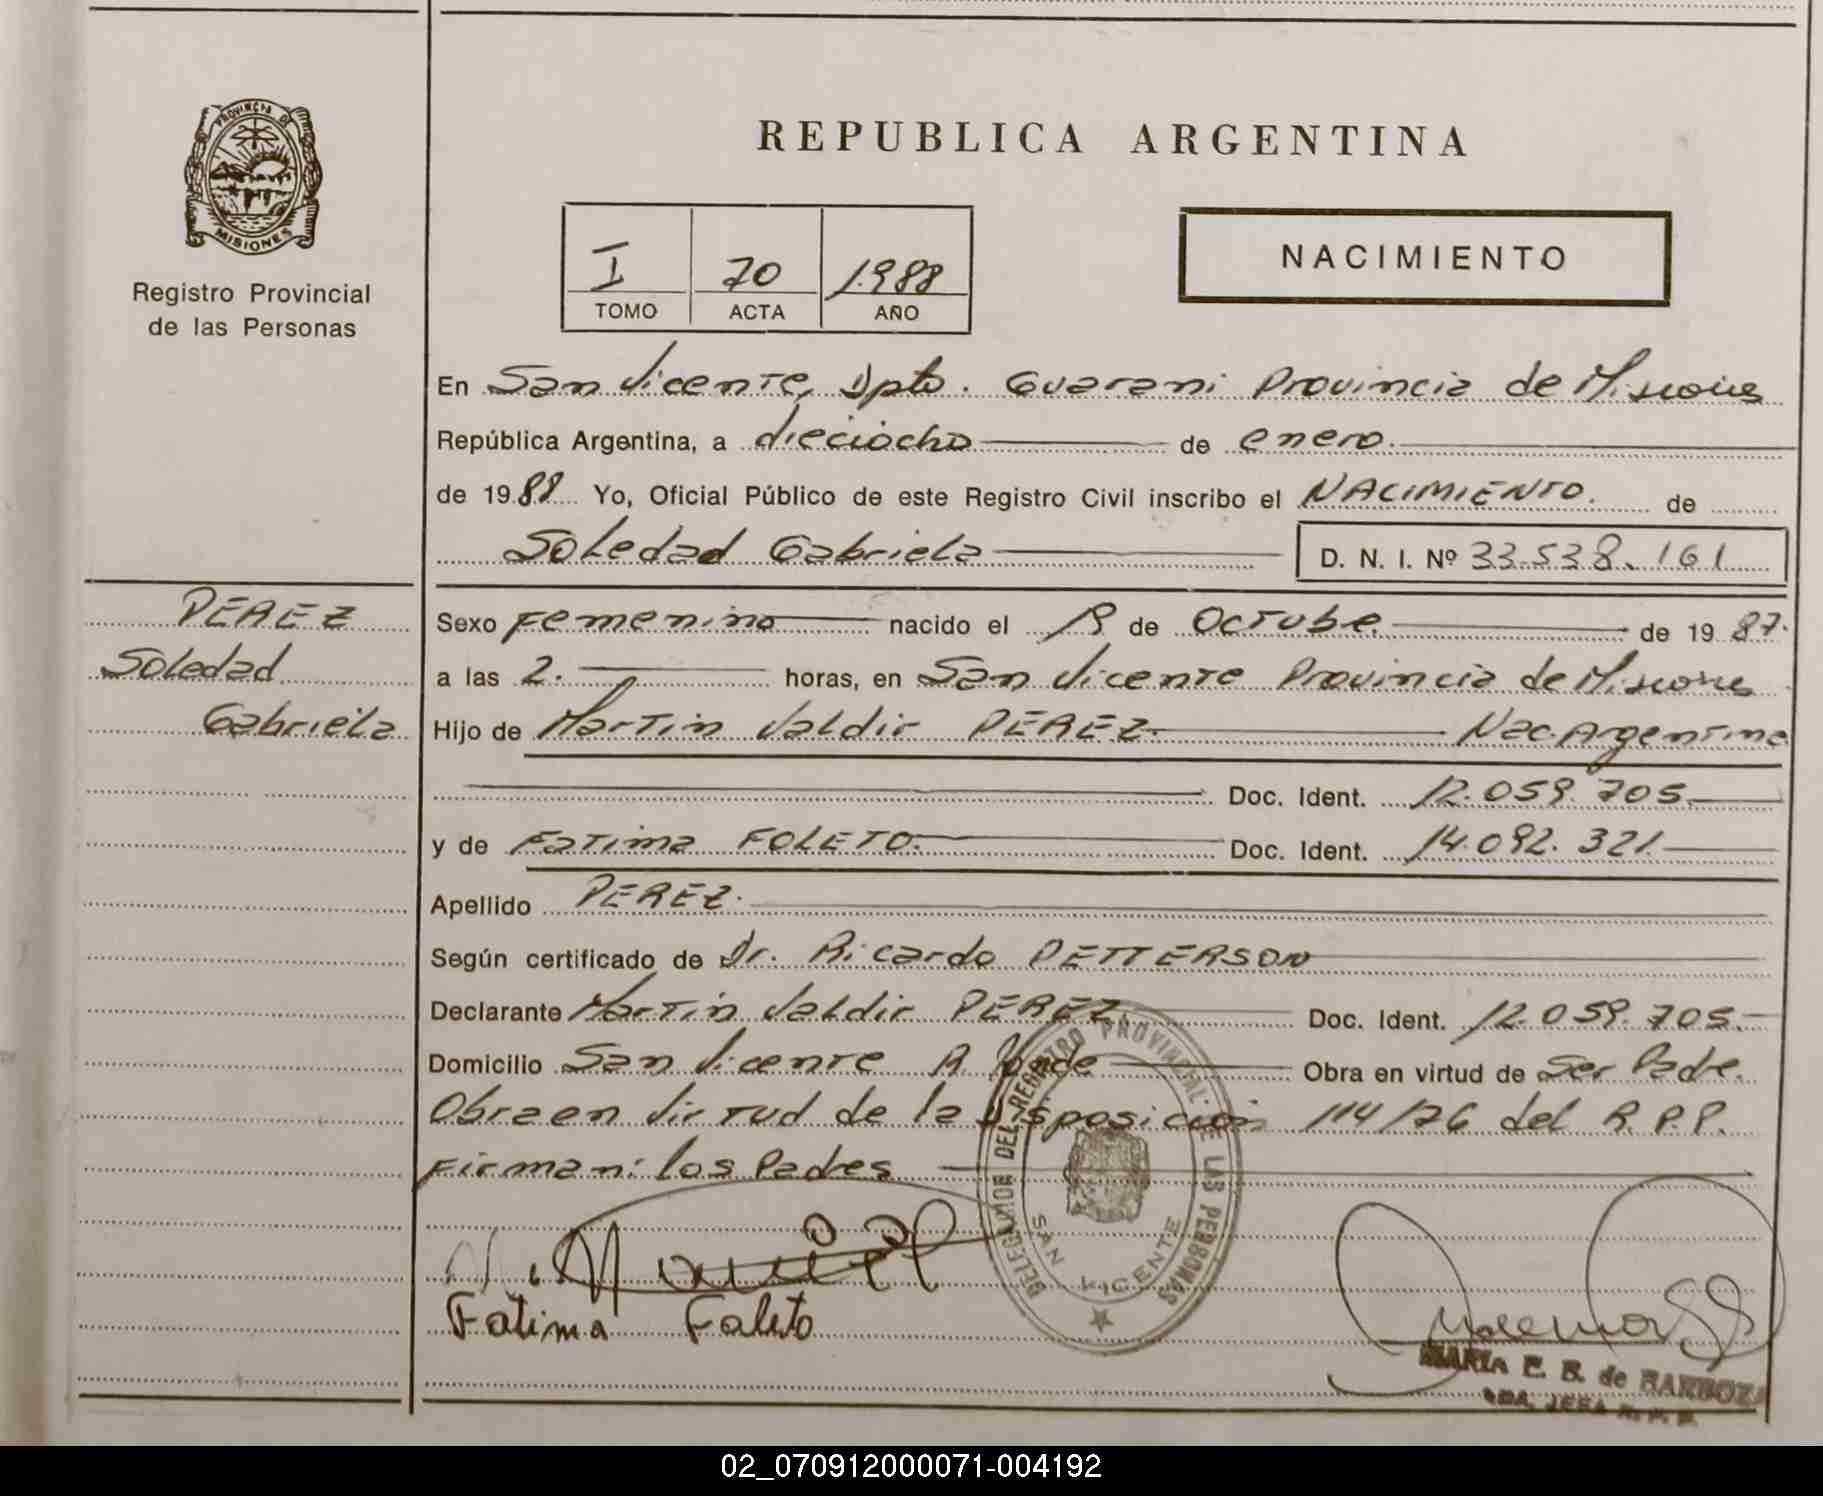 PROVINCIA DE
MISIONES
Registro Provincial
de las Personas
REPUBLICA ARGENTINA
I 70 1988
TOMO ACTA AÑO
NACIMIENTO
En San Vicente, Dpto. Guarani Provincia de Misiones
República Argentina, a dieciocho de enero.
de 1988 Yo, Oficial Público de este Registro Civil inscribo el NACIMIENTO. de
Soledad Gabriela D. N. I. Nº 33.538.161
PEREZ
Soledad
Gabriela
Sexo Femenino nacido el de Octubre de 1987.
a las 2. horas, en San Vicente Provincia de Misiones
Hijo de Martin Valdir PEREZ. Nac. Argentina
Doc. Ident. 12.059.705.
y de Fatima FOLETO. Doc. Ident. 14.092.321.
Apellido PEREZ.
Según certificado de Dr. Ricardo PETTERSON
Declarante Martin Valdir PEREZ Doc. Ident. 12.059.705.
Domicilio San Vicente Obra en virtud de Ser Padre.
Obra en virtud de la Disposición 114/76 del R.P.P.
Firman: los Padres
DELEGACION DEL REGISTRO PROVINCIAL DE LAS PERSONAS
SAN VICENTE
Fatima Foleto
MARIA E. B. de BARBOZA
02_070912000071-004192